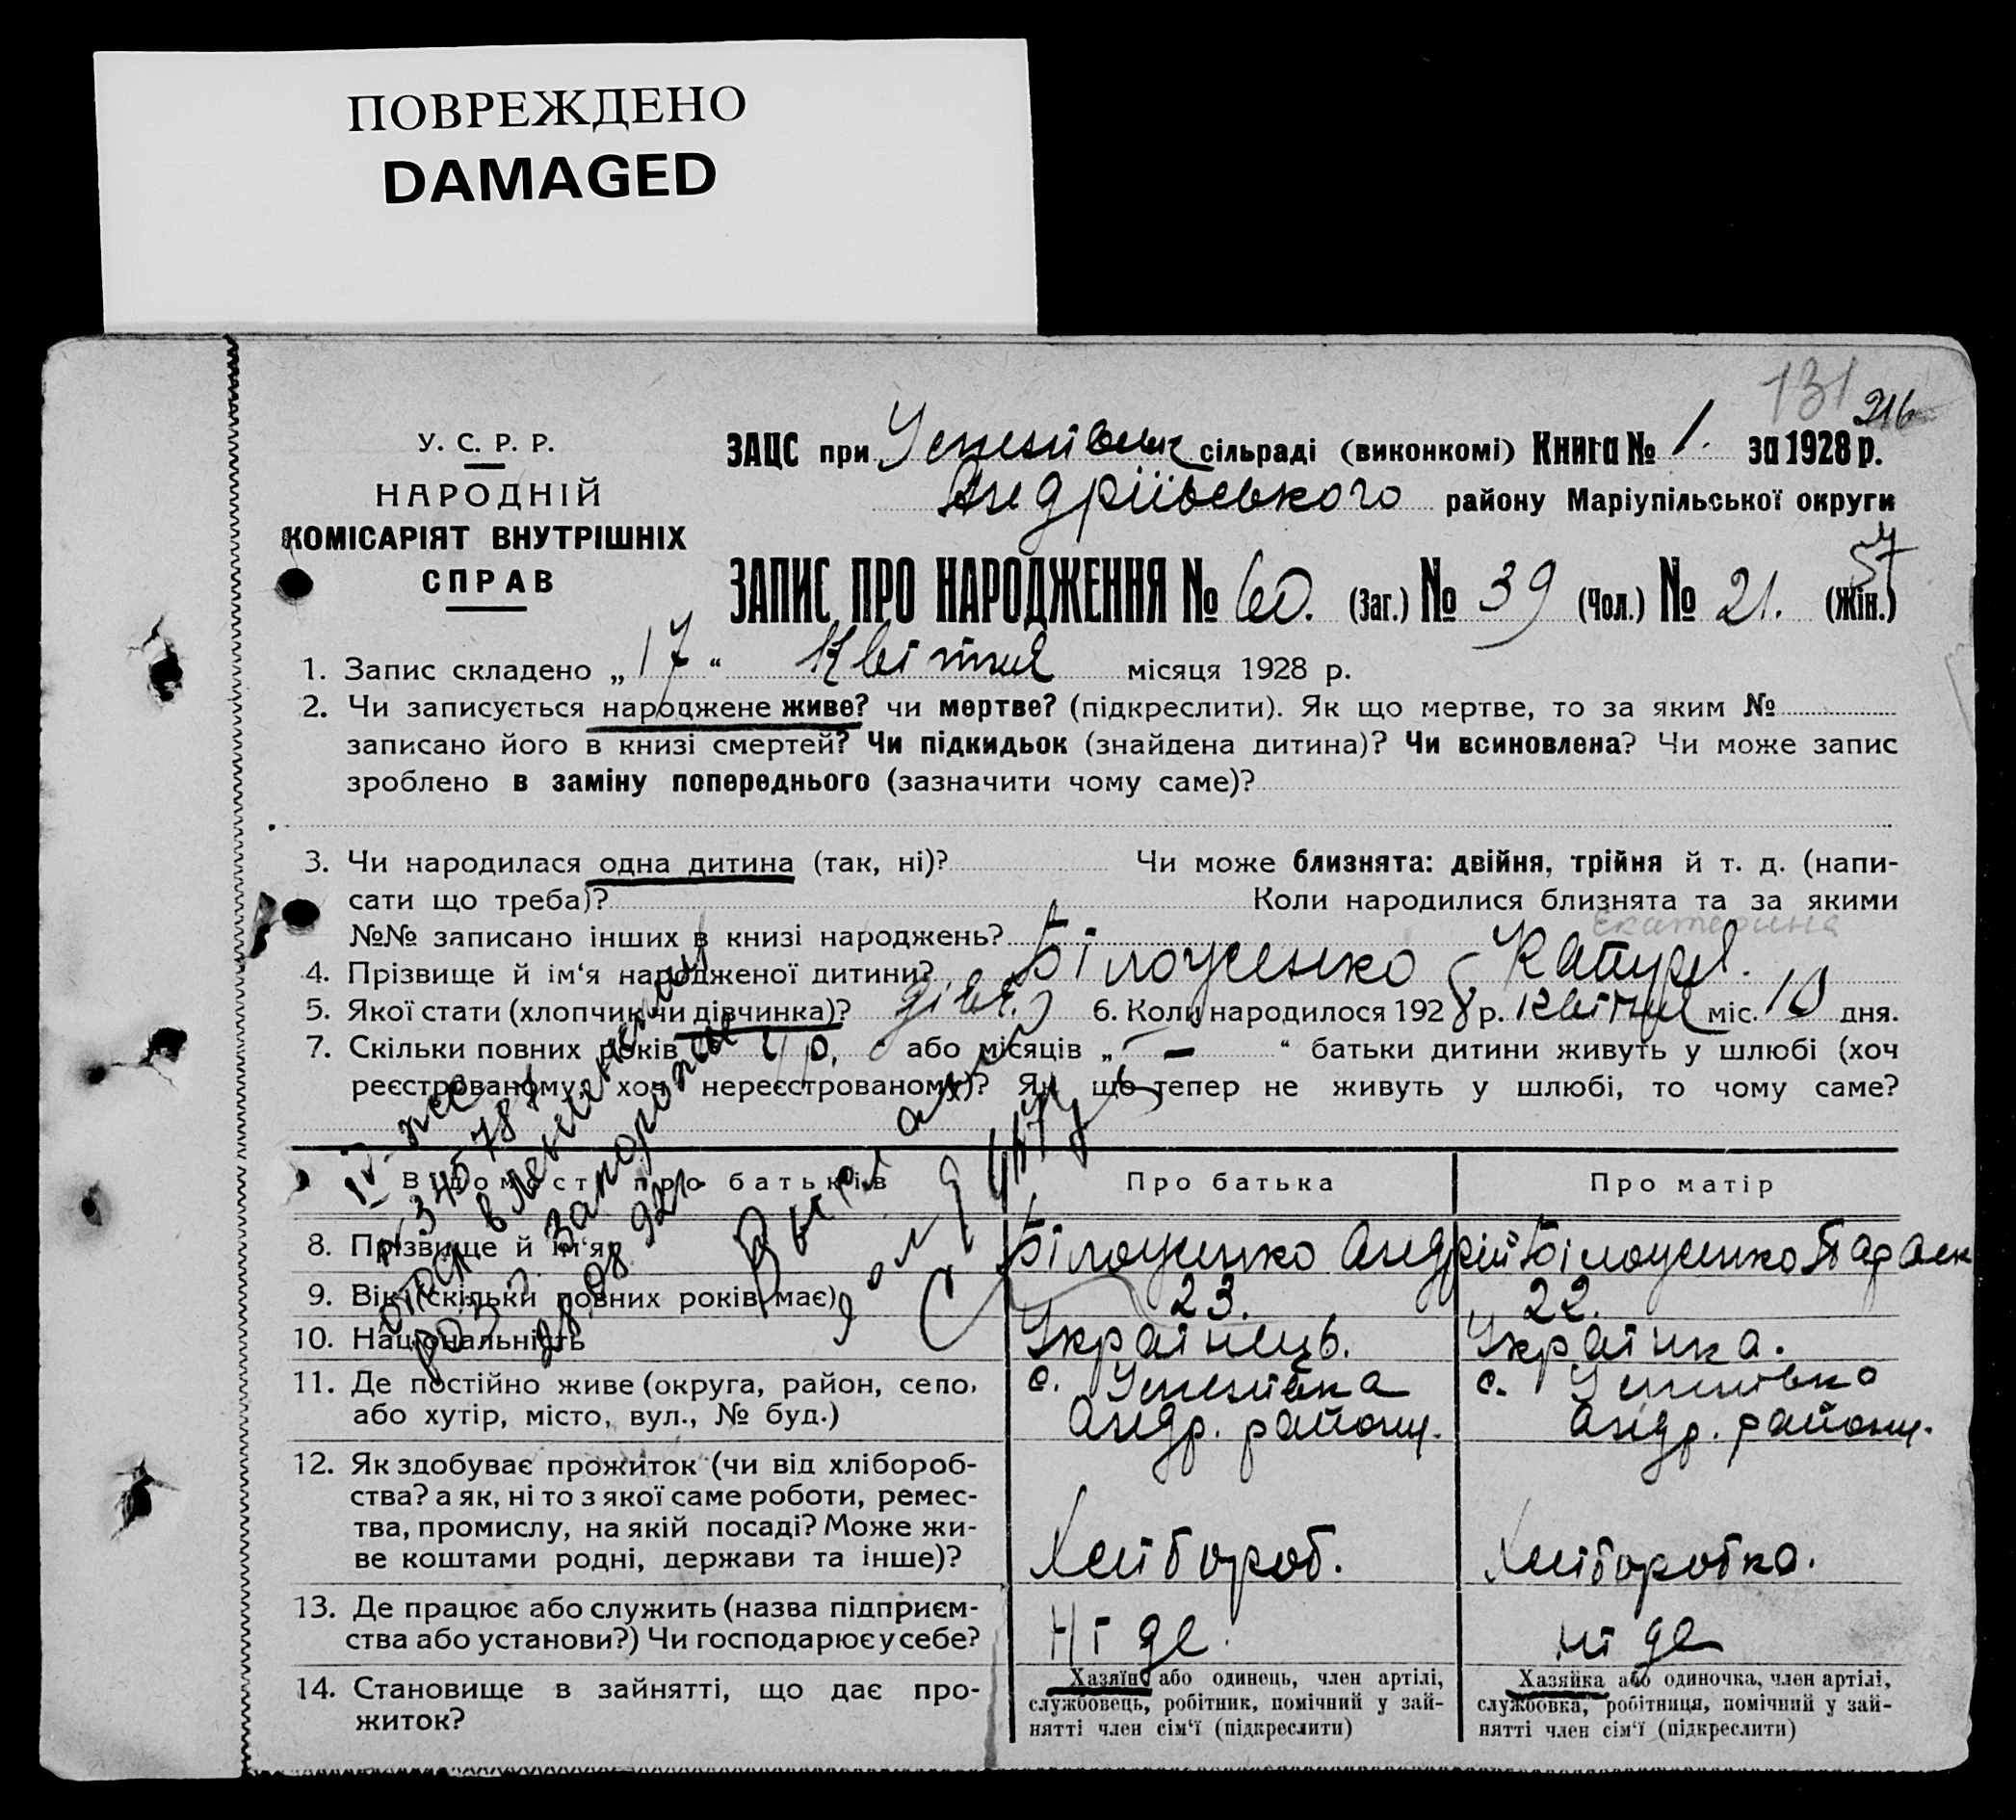 ПОВРЕЖДЕНО
DAMAGED
131 216
У. С. Р. Р.
НАРОДНІЙ
КОМІСАРІЯТ ВНУТРІШНІХ
СПРАВ
ЗАЦС при Успенівськ сільраді (виконкомі) Книга № 1. за 1928 р.
Андріївського району Маріупільської округи
57
ЗАПИС ПРО НАРОДЖЕННЯ № 60. (Заг.) № 39 (Чол.) № 21. (Жін.)
1. Запис складено „17“ Квітня місяця 1928 р.
2. Чи записується народжене живе? чи мертве? (підкреслити). Як що мертве, то за яким №
записано його в книзі смертей? Чи підкидьок (знайдена дитина)? Чи всиновлена? Чи може запис
зроблено в заміну попереднього (зазначити чому саме)?
3. Чи народилася одна дитина (так, ні)? Чи може близнята: двійня, трійня й т. д. (напи-
сати що треба)? Коли народилися близнята та за якими
№№ записано інших в книзі народжень? Екатерина
4. Прізвище й ім‘я народженої дитини? Білоусенко Катря.
5. Якої стати (хлопчик чи дівчинка)? дівч. 6. Коли народилося 1928 р. Квітня міс. 10 дня.
7. Скільки повних років „ 4 р. або місяців „ — “ батьки дитини живуть у шлюбі (хоч
реєстрованому, хоч нереєстрованому)? Як що тепер не живуть у шлюбі, то чому саме?
Відомості про батьків Про батька Про матір
8. Прізвище й ім‘я Білоусенко Андрій Білоусенко Параск
9. Вік (скільки повних років має) 23. 22.
10. Національність Українець. Українка.
11. Де постійно живе (округа, район, село, с. Успенівка с. Успенівка
або хутір, місто, вул., № буд.) Андр. району. Андр. району.
12. Як здобуває прожиток (чи від хлібороб-
ства? а як, ні то з якої саме роботи, ремес-
тва, промислу, на якій посаді? Може жи-
ве коштами родні, держави та інше)? Хлібороб. Хліборобка.
13. Де працює або служить (назва підприєм-
ства або установи?) Чи господарює у себе? Ні де. Ні де
14. Становище в зайнятті, що дає про-
житок?
Хазяїн або одинець, член артілі,
службовець, робітник, помічний у зай-
нятті член сім‘ї (підкреслити)
Хазяйка або одиночка, член артілі,
службовка, робітниця, помічний у зай-
нятті член сім‘ї (підкреслити)